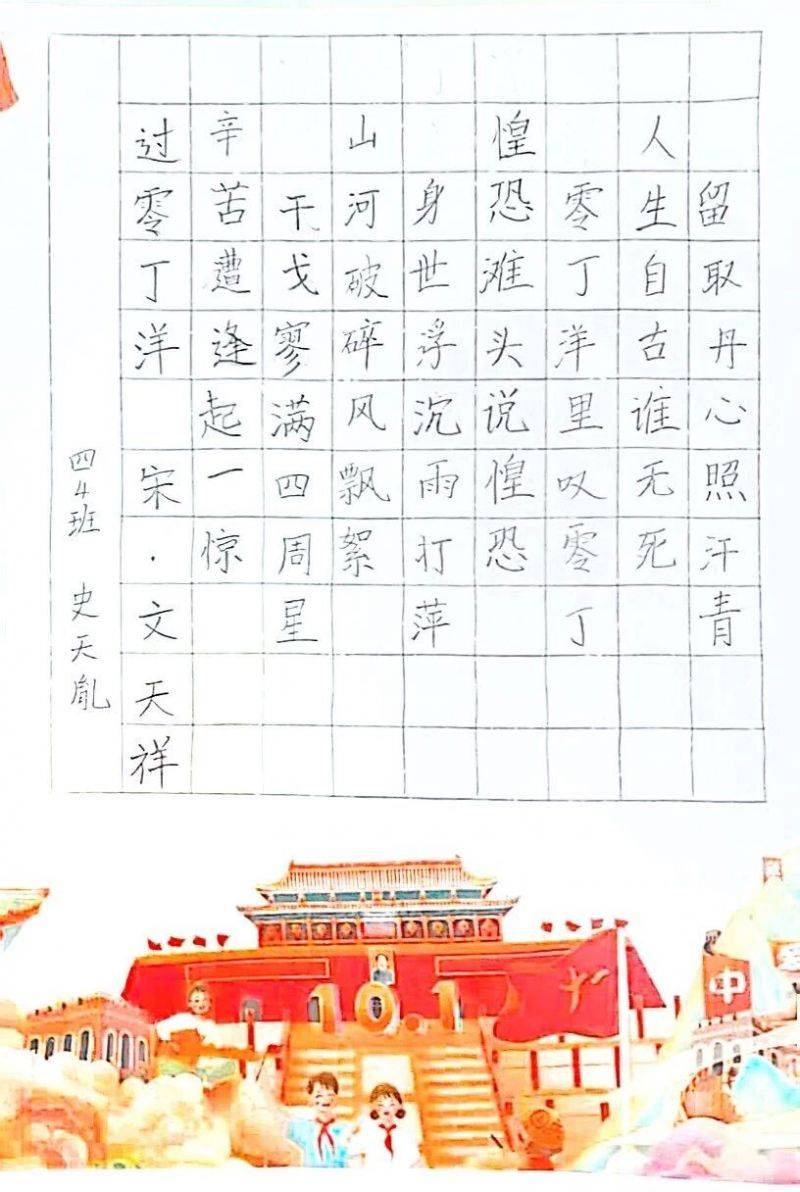 过零丁洋 宋·文天祥
辛苦遭逢起一惊
干戈寥满四周星
山河破碎风飘絮
身世浮沉雨打萍
惶恐滩头说惶恐
零丁洋里叹零丁
人生自古谁无死
留取丹心照汗青
四4班 史天胤
10.1
中